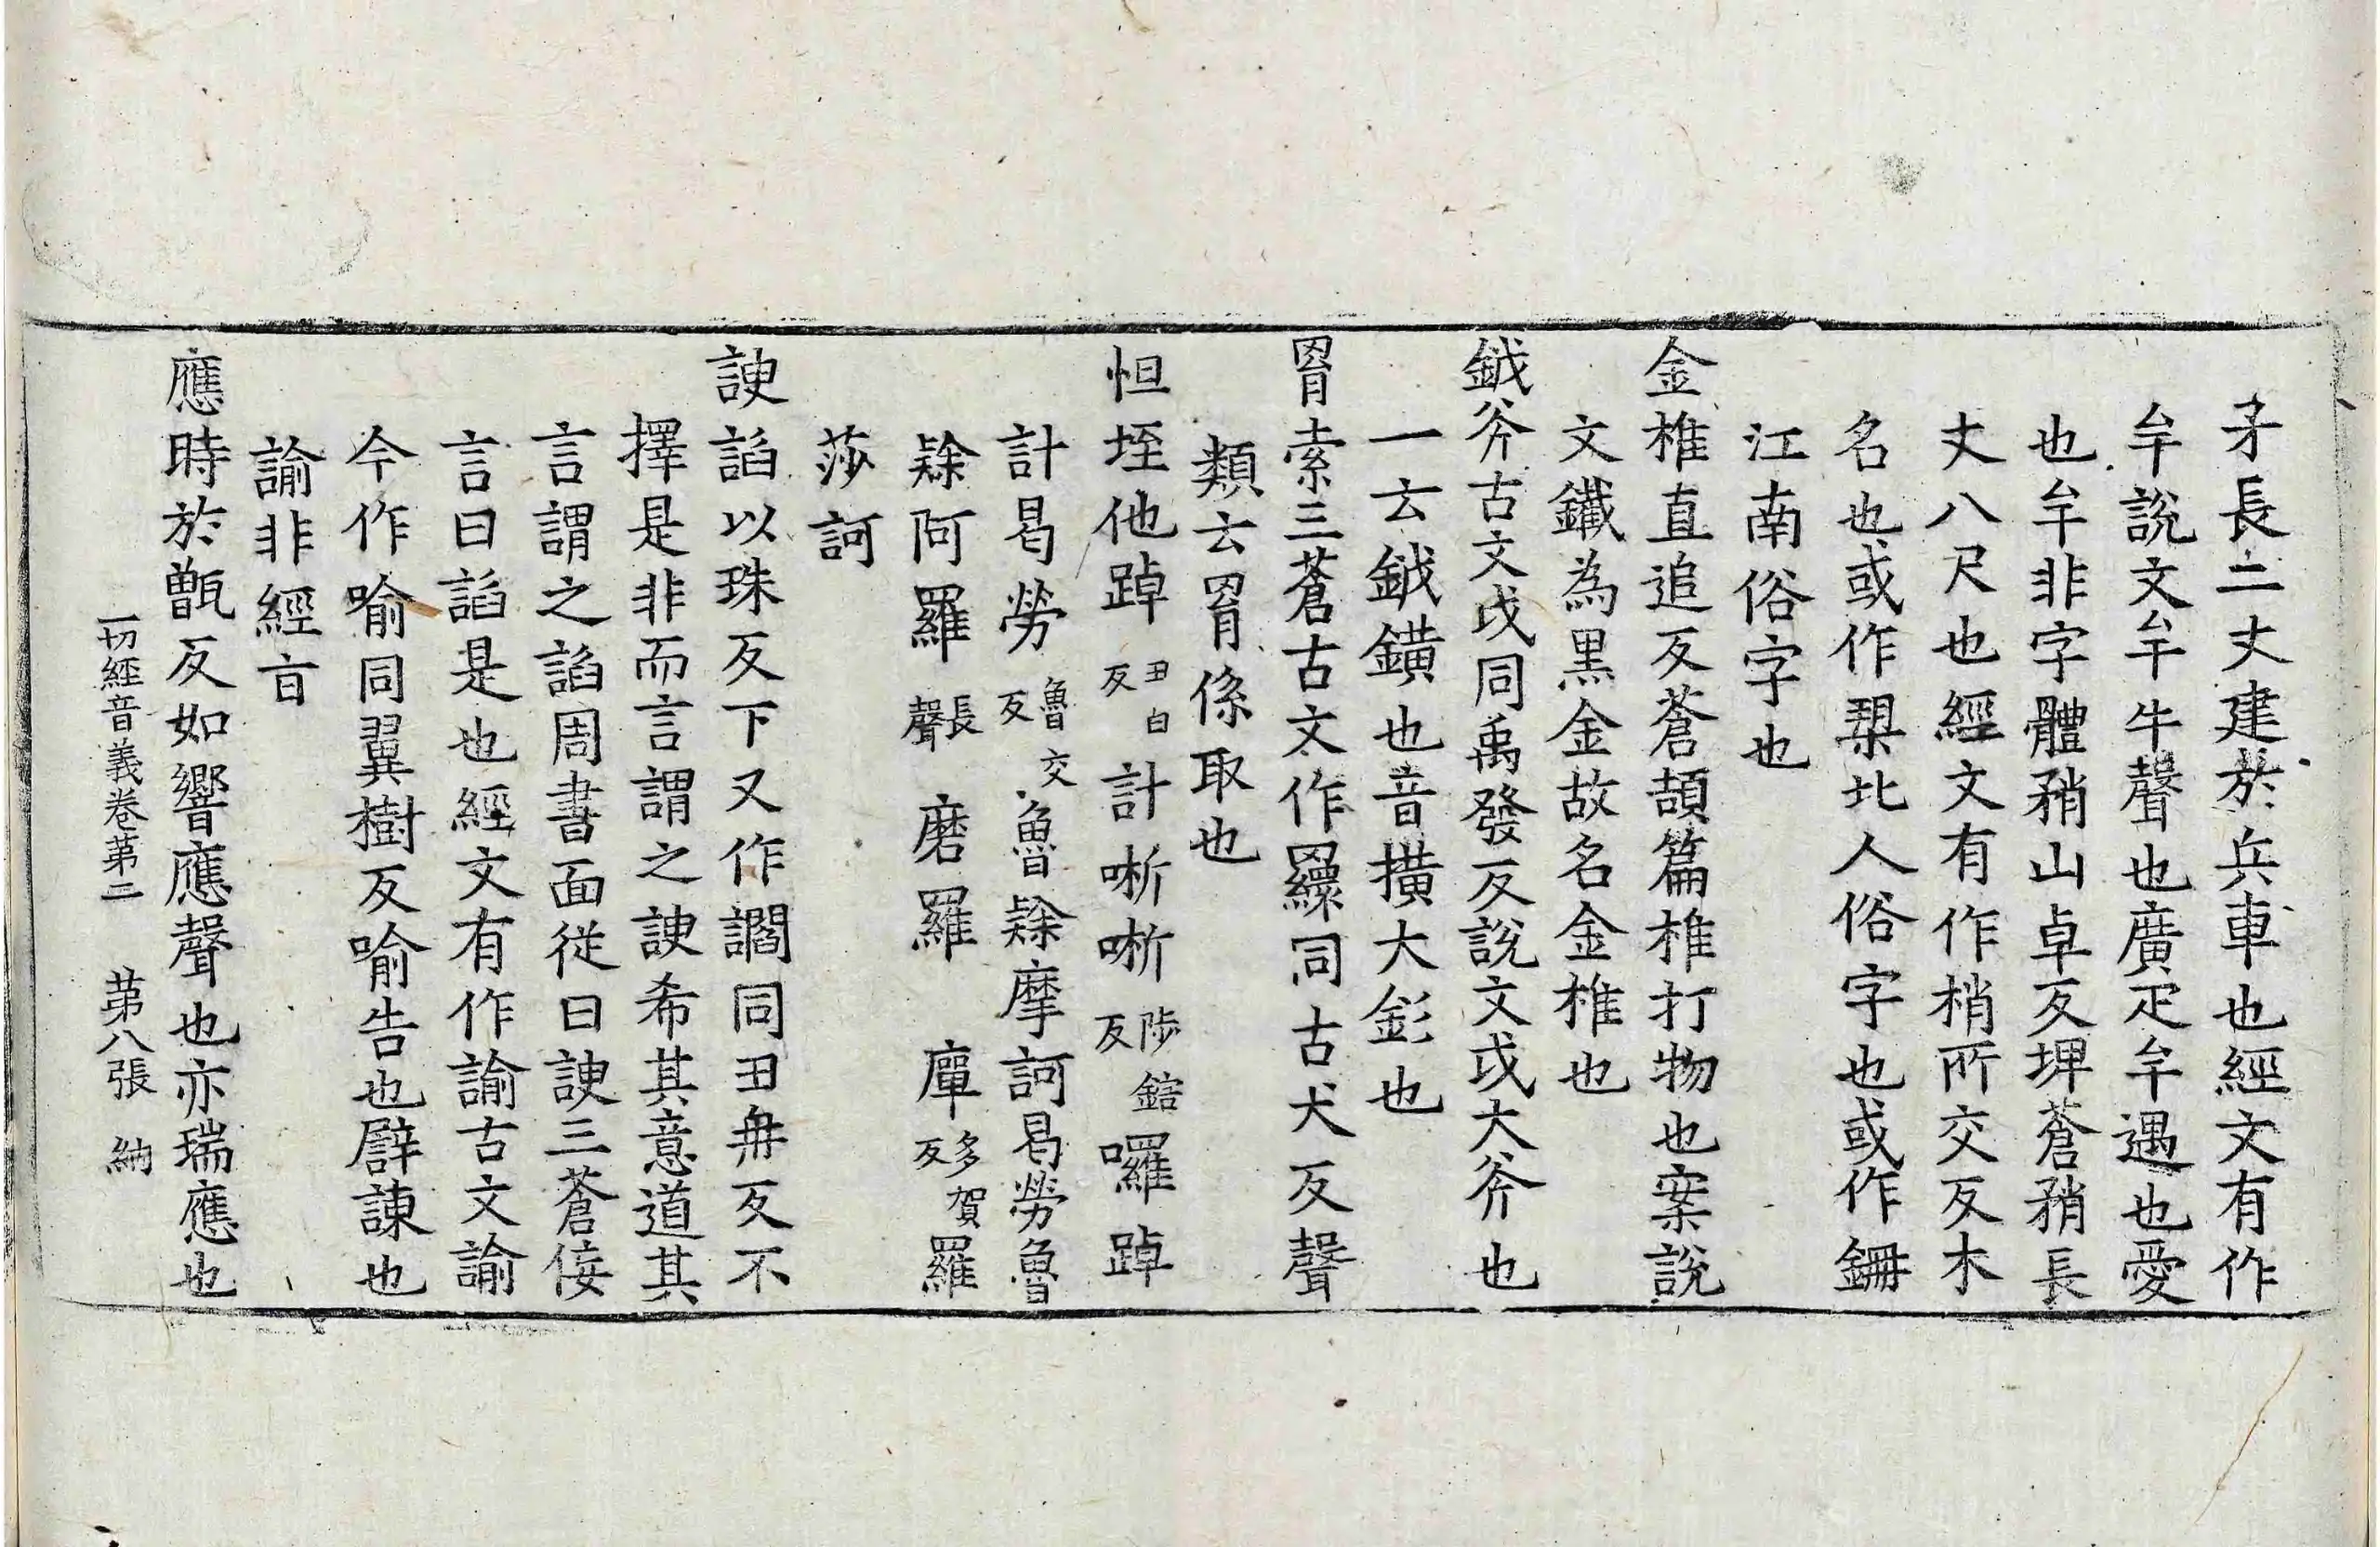 矛長二丈建於兵車也經文有作
牟說文牟牛聲也廣疋牟遇也愛
也牟非字體矟山卓反埤蒼矟長
丈八尺也經文有作梢所交反木
名也或作槊北人俗字也或作鎙
江南俗字也
金椎直追反蒼頡篇椎打物也案說
文鐵為黑金故名金椎也
鉞斧古文戉同禹發反說文戉大斧也
一云鉞鐄也音撗大釤也
罥索三蒼古文作羂同古犬反聲
類云罥係取也
怛垤他踔丑白反計晣晣陟鎋反囉踔
計曷勞魯交反魯𨽻摩訶曷勞魯
𨽻阿羅長聲磨羅 㢆多賀反羅
莎訶
諛諂以珠反下又作讇同丑冉反不
擇是非而言謂之諛希其意道其
言謂之諂周書面從曰諛三蒼佞
言曰諂是也經文有作諭古文諭
今作喻同翼樹反喻告也譬諫也
諭非經旨
應時於甑反如響應聲也亦瑞應也
一切經音義卷第二 第八張 納